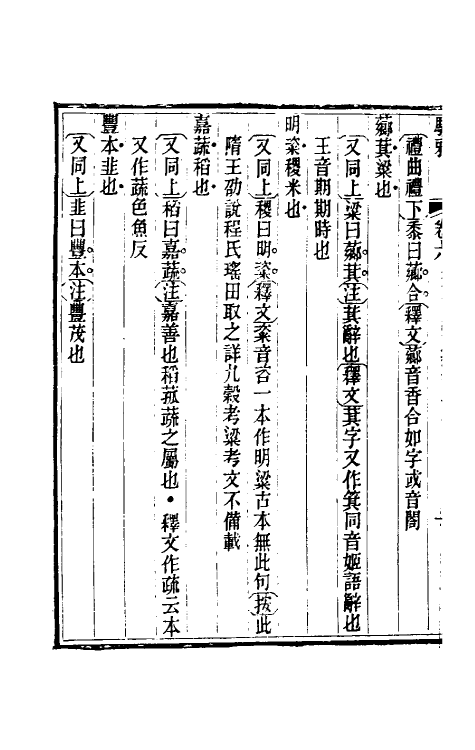 禮曲禮下黍曰薌合釋文薌音香合如字或音閤
薌萁粱也
又同上粱曰薌萁注萁辭也釋文萁字又作箕同音姬語辭也
王音期期時也
明粢稷米也
又同上稷曰明粢釋文粢音咨一本作明粱古本無此句按此
隋王劭說程氏瑤田取之詳九穀考粱考文不備載
嘉蔬稻也
又同上稻曰嘉蔬注嘉善也稻菰蔬之屬也・釋文作疏云本
又作蔬色魚反
豐本韭也
又同上韭曰豐本注豐茂也